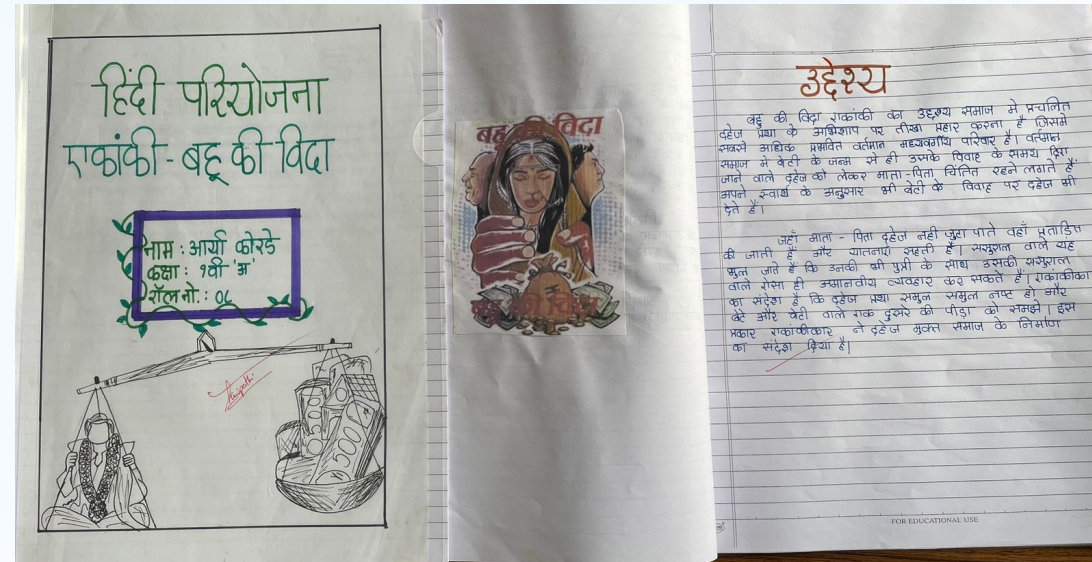 हिंदी परियोजना
एकांकी - बहू की विदा
नाम : आर्या कोरडे
कक्षा : ९वी 'अ'
रॉल नो. : ०८
बहू की विदा
बहू की विदा
उद्देश्य
बहू की विदा एकांकी का उद्देश्य समाज में प्रचलित
दहेज प्रथा के अभिशाप पर तीखा प्रहार करना है जिसमे
सबसे अधिक प्रभवित वर्तमान मध्यवर्गीय परिवार है। वर्तमान
समाज मे बेटी के जन्म से ही उसके विवाह के समय दिए
जाने वाले दहेज को लेकर माता-पिता चिंतित रहने लगते हैं
अपने स्वार्थ के अनुसार भी बेटी के विवाह पर दहेज भी
देते हैं।
जहाँ माता - पिता दहेज नही जुटा पाते वहाँ प्रताडित
की जाती हैं और यातनाएँ सहती हैं। ससुराल वाले यह
भूल जाते हैं कि उनकी भी पुत्री के साथ उसकी ससुराल
वाले ऐसा ही अमानवीय व्यवहार कर सकते हैं। एकांकीका
का संदेश है कि दहेज प्रथा समुल समुल नष्ट हो और
बेटे और बेटी वाले एक दुसरे की पीड़ा को समझे। इस
प्रकार एकांकीकार ने दहेज मुक्त समाज के निर्माण
का संदेश दिया है।
FOR EDUCATIONAL USE